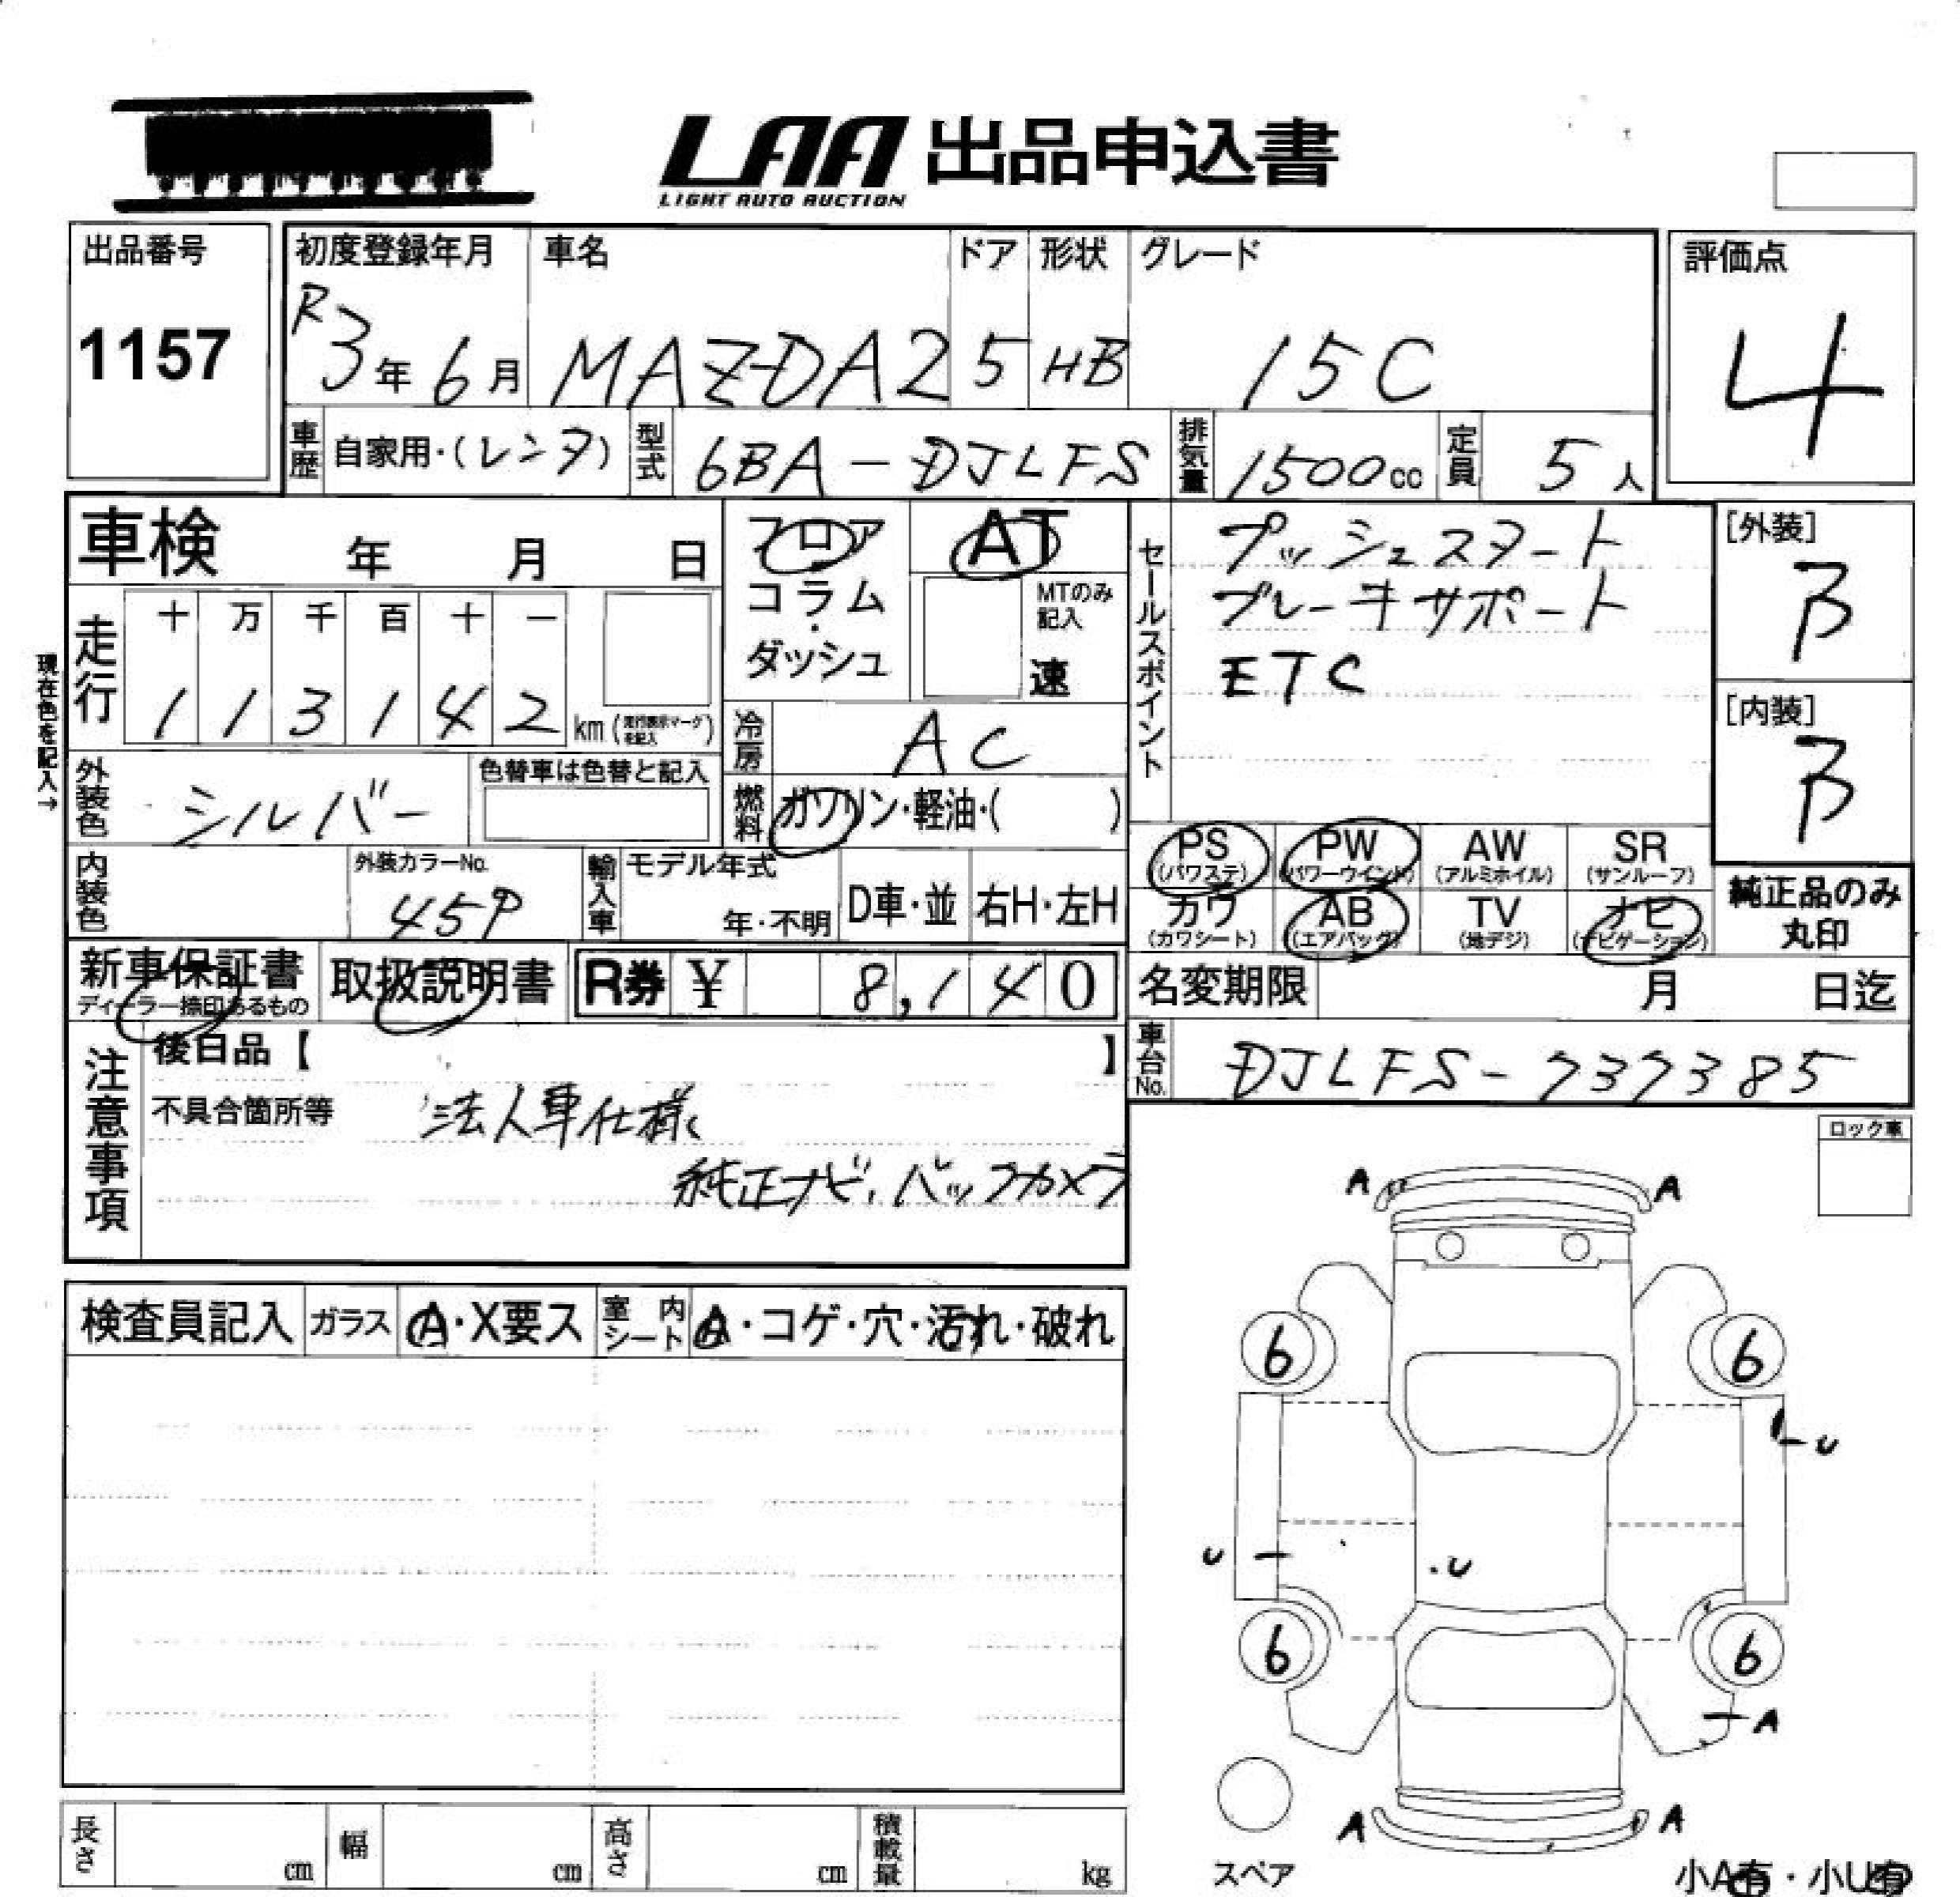 LAA 出品申込書
LIGHT AUTO AUCTION
出品番号
1157
初度登録年月
R3年6月
車名
MAZDA2
ドア
5
形状
HB
グレード
15C
評価点
4
車歴
自家用・(レンタ)
型式
6BA-DJLFS
排気量
1500cc
定員
5人
車検 年 月 日
現在色を記入→
走行
十 万 千 百 十 一
1 1 3 1 4 2 km (走行表示マークを記入)
フロア
コラム
・
ダッシュ
AT
MTのみ記入
速
セールスポイント
プッシュスタート
ブレーキサポート
ETC
[外装]
B
[内装]
B
冷房
AC
外装色
シルバー
色替車は色替と記入
燃料
ガソリン・軽油・( )
内装色
外装カラーNo.
45P
輸入車
モデル年式
年・不明
D車・並
右H・左H
PS
(パワステ)
PW
(パワーウインド)
AW
(アルミホイル)
SR
(サンルーフ)
カワ
(カワシート)
AB
(エアバッグ)
TV
(地デジ)
ナビ
(ナビゲーション)
純正品のみ
丸印
新車保証書
ディーラー捺印あるもの
取扱説明書
R券 ¥ 8,140
名変期限 月 日迄
注意事項
後日品【 】
不具合箇所等 法人車仕様
純正ナビ、バックカメラ
車台No.
DJLFS-737385
ロック車
検査員記入
ガラス
A・X要ス
室内シート
A・コゲ・穴・汚れ・破れ
A A
6 6
U
U .U
6 6
A
A A
スペア
小A有・小U有
長さ cm
幅 cm
高さ cm
積載量 kg